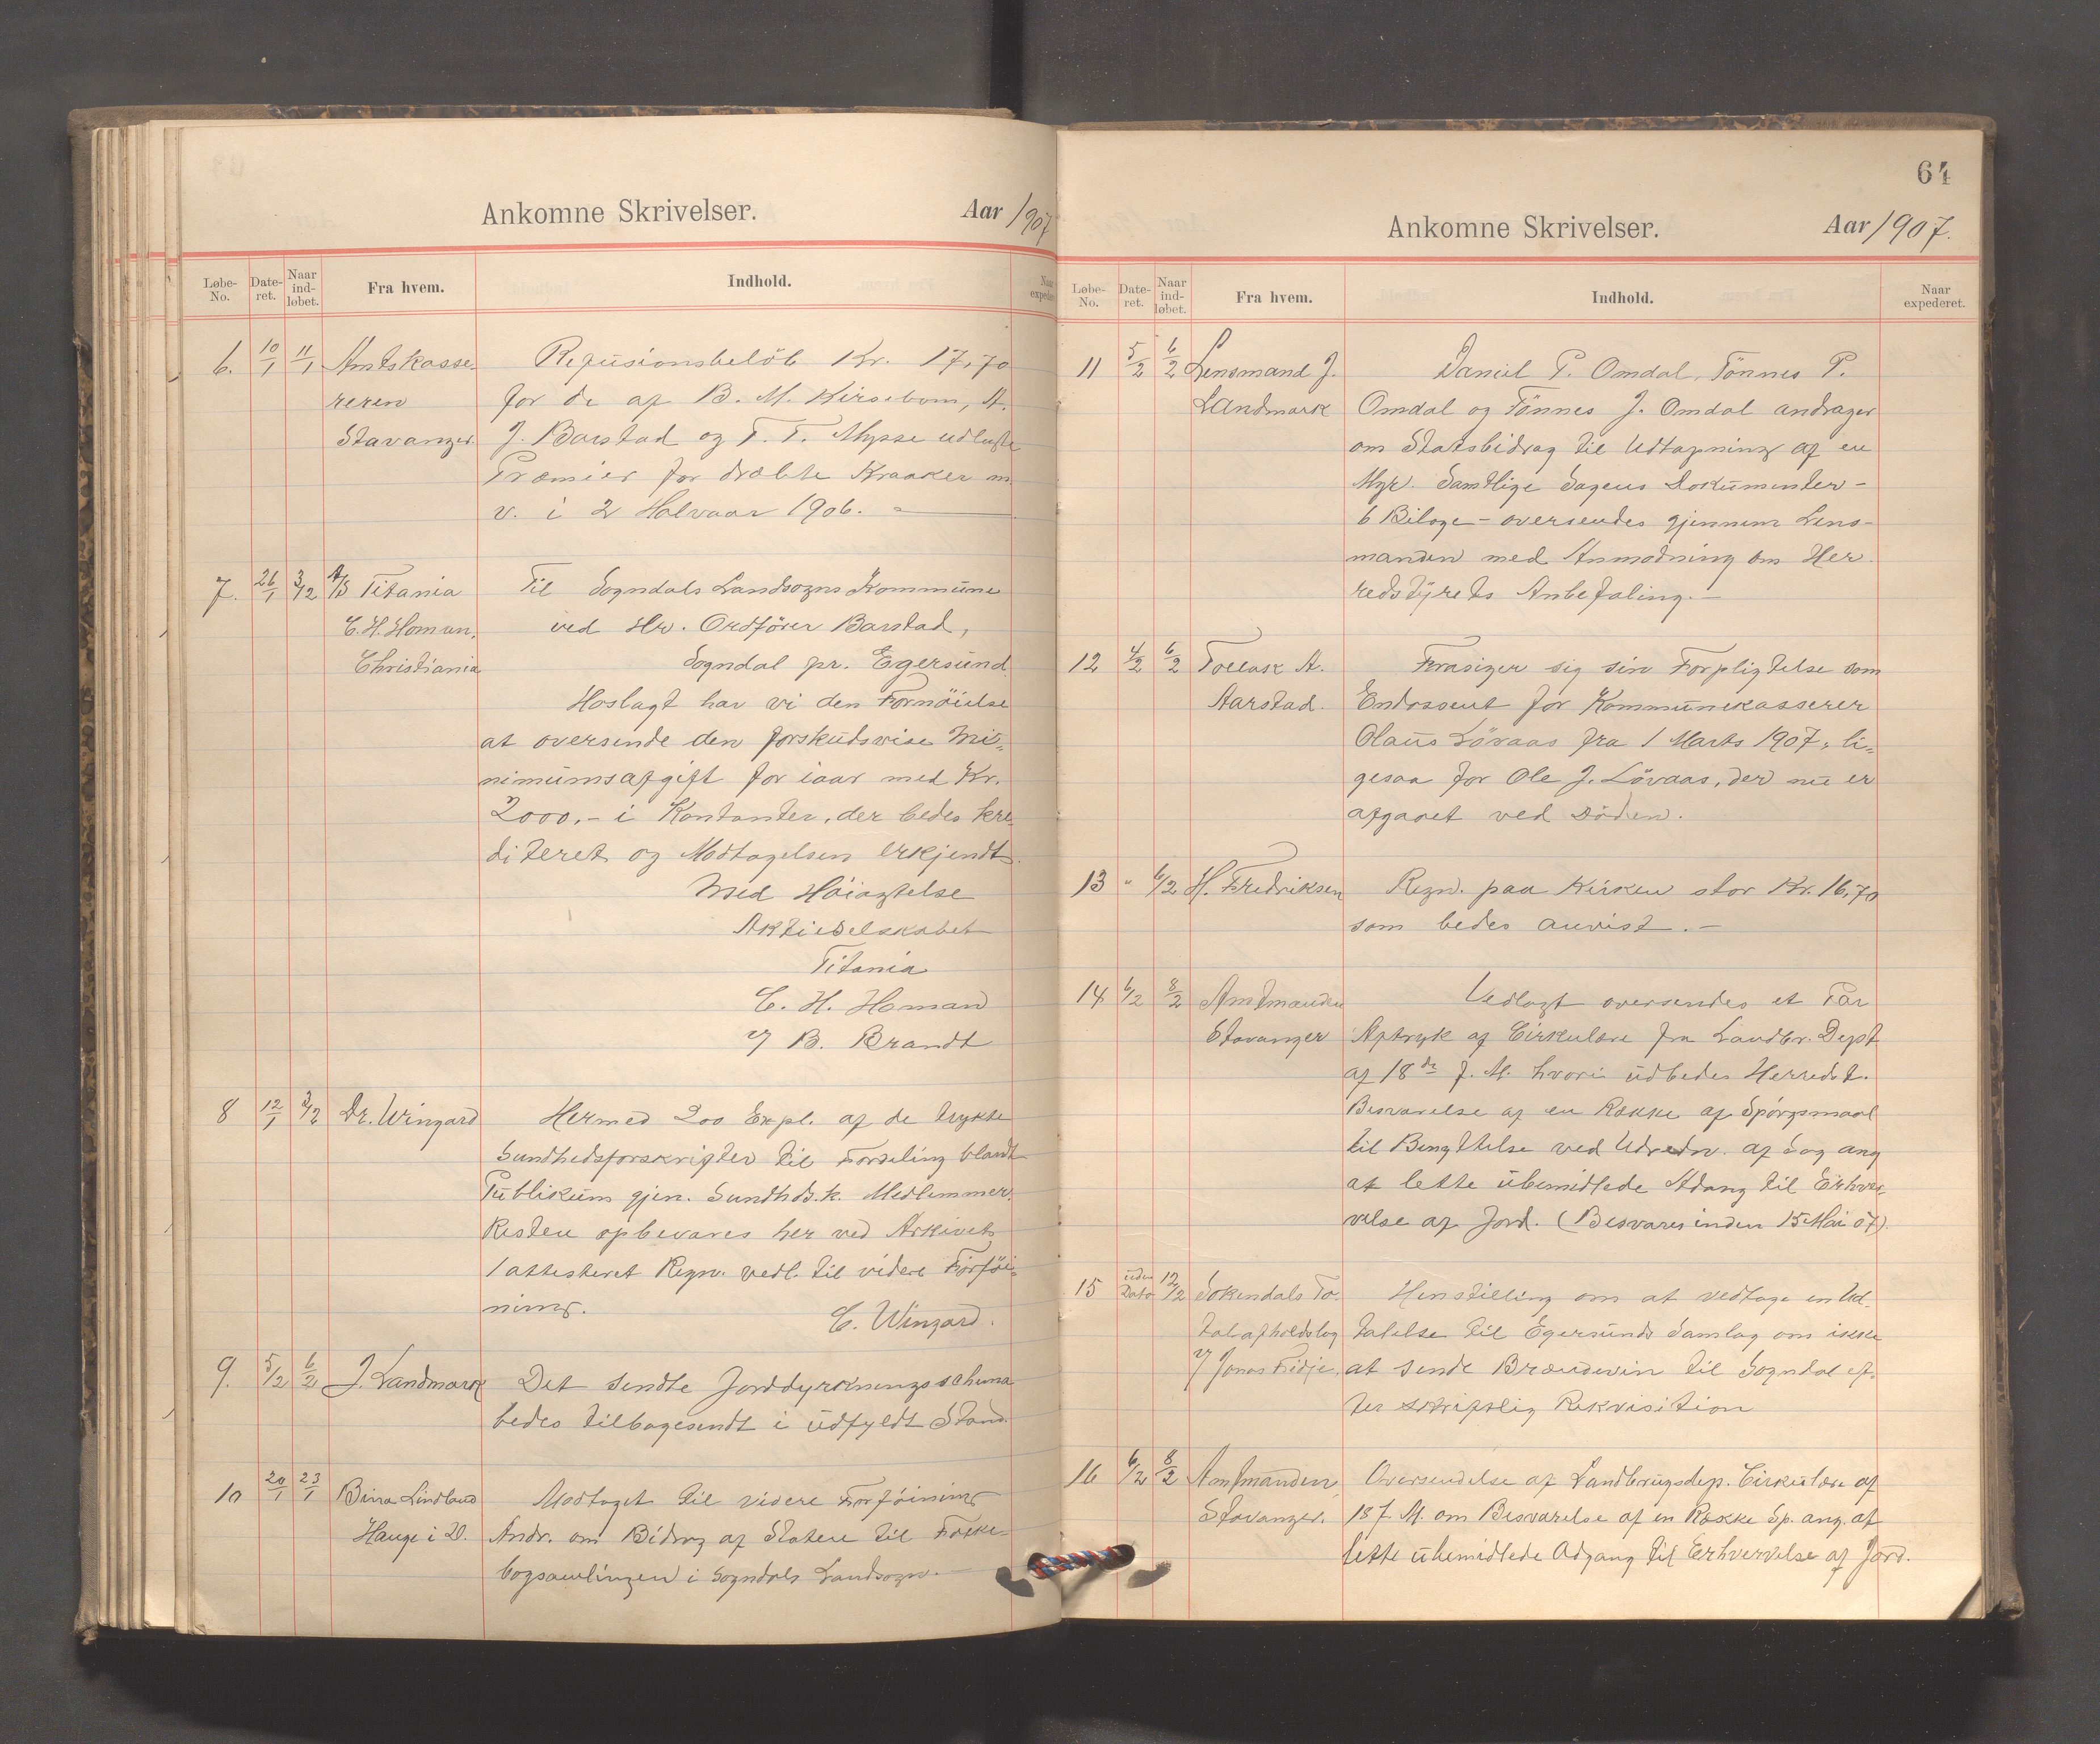 Ankomne Skrivelser. Aar 1907
Løbe-No. Date-ret. Naar ind-løbet. Fra hvem. Indhold. Naar expede
6. 10/1 11/1 Amtskasse- Refusionsbeløb Kr. 17,70
reren for de af B. M. Kirsebom, A.
Stavanger. J. Barstad og T. T. Mysse udlagte
Præmier for dræbte Kraaker m.
v. i 2 Halvaar 1906. -
7. 26/1 3/2 A/S Titania Til Sogndals Landsogns Kommune
C. H. Homan, ved Hr. Ordfører Barstad,
Christiania Sogndal pr. Egersund.
Hoslagt har vi den Fornøielse
at oversende den forskudsvise Mi-
nimumsafgift for iaar med Kr.
2000.- i Kontanter, der bedes kre-
diteret og Modtagelsen erkjendt.
Med Høiagtelse
Aktieselskabet
Titania
C. H. Homan
v/ B. Brandt
8 12/1 3/2 Dr. Wingard Hermed 200 Expl. af de trykte
Sundhedsforskrifter til Fordeling blandt
Publikum gjen. Sundhds.k. Medlemmer.
Resten opbevares her ved Arkivet.
1 attesteret Regn. vedl. til videre Forføi-
ning.
C. Wingard.
9. 5/2 6/2 J. Landmark Det sendte Jorddyrkningsschema
bedes tilbagesendt i udfyldt Stand.
10 20/1 23/1 Lindland Modtaget til videre Forføining
Hauge i D. Andr. om Bidrag af Staten til Folke-
bogsamlingen i Sogndals Landsogn. -
64
Ankomne Skrivelser. Aar 1907.
Løbe-No. Date-ret. Naar ind-løbet. Fra hvem. Indhold. Naar expederet.
11 5/2 6/2 Lensmand J. Daniel P. Omdal, Tønnes P.
Landmark Omdal og Tønnes J. Omdal andrager
om Statsbidrag til Udtapning af en
Myr. Samtlige Sagens Dokumenter -
6 Bilage - oversendes gjennem Lens-
manden med Anmodning om Her-
redstyrets Anbefaling. -
12 4/2 6/2 Tollak A. Frasiger sig sin Forpligtelse som
Aarstad. Endossent for Kommunekasserer
Olaus Løvaas fra 1 Marts 1907, li-
gesaa for Ole J. Løvaas, der nu er
afgaaet ved Døden.
13 " 6/2 H. Fredriksen Regn. paa Kirken stor Kr. 16,70
som bedes anvist. -
14 6/2 8/2 Amtmanden Vedlagt oversendes et Par
Stavanger Aftryk af Cirkulære fra Landbr. Dept
af 18de f. M. hvori udbedes Herredst.
Besvarelse af en Række af Spørgsmaal
til Benyttelse ved Udredn. af Sag ang
at lette ubemidlede Adang til Erhver-
velse af Jord. (Besvares inden 15 Mai 07).
15 uden Dato 12/2 Sokendals To- Henstilling om at vedtage en Ud-
talafholdslag talelse til Egersunds Samlag om ikke
v/ Jonas Fidje, at sende Brændevin til Sogndal ef-
ter skriftlig Rekvisition
16 6/2 8/2 Amtmanden, Oversendelse af Landbrugsdep. Cirkulære af
Stavanger. 18 f. M. om Besvarelse af en Række Sp. ang. at
lette ubemidlede Adgang til Erhvervelse af Jord.